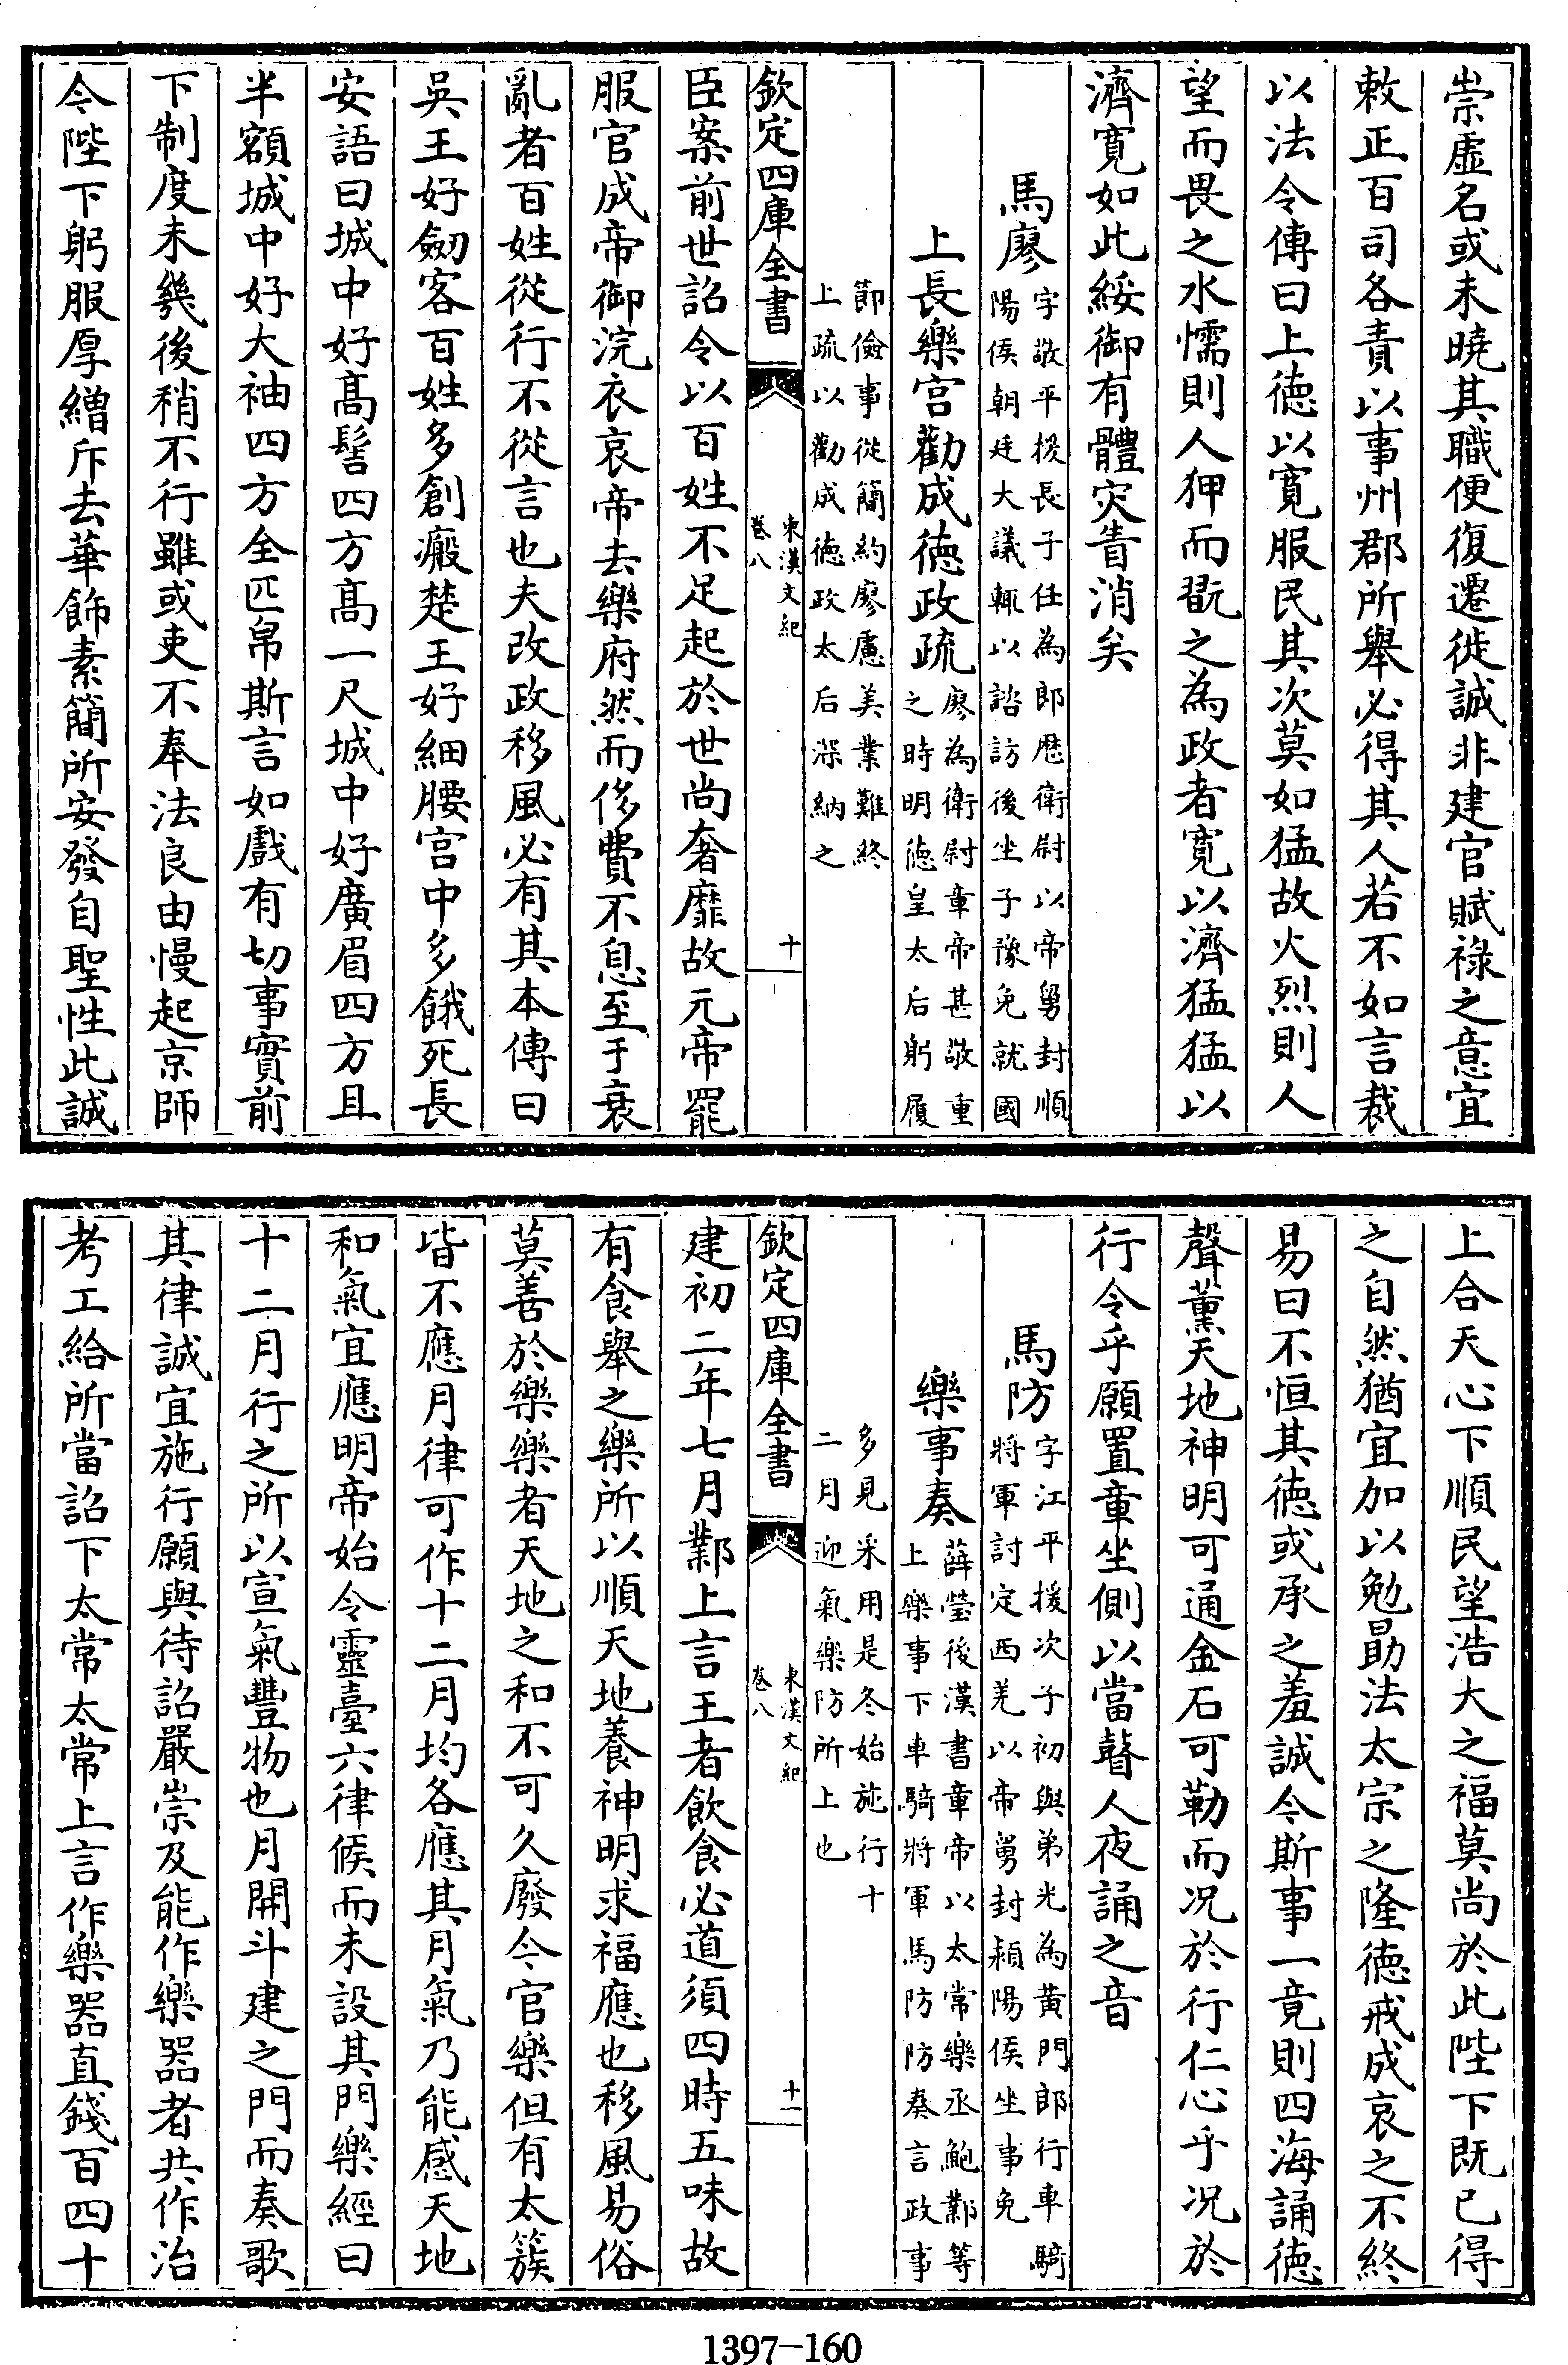 崇虛名或未曉其職便復遷徙誠非建官賦祿之意宜
敕正百司各責以事州郡所舉必得其人若不如言裁
以法令傳曰上德以寬服民其次莫如猛故火烈則人
望而畏之水懦則人狎而翫之為政者寛以濟猛猛以
濟寛如此綏御有體灾眚消矣
馬廖
字敬平援長子任為郎歴衛尉以帝舅封順
陽侯朝廷大議輒以諮訪後坐子豫免就國
上長樂宫勸成徳政疏
廖為衛尉章帝甚敬重
之時明徳皇太后躬履
節儉事從簡約廖慮美業難終
上疏以勸成徳政太后深納之
欽定四庫全書
東漢文紀
卷八
十
臣案前世詔令以百姓不足起於世尚奢靡故元帝罷
服官成帝御浣衣哀帝去樂府然而侈費不息至于衰
亂者百姓從行不從言也夫改政移風必有其本傳曰
吳王好劒客百姓多創瘢楚王好細腰宫中多餓死長
安語曰城中好髙髻四方髙一尺城中好廣眉四方且
半額城中好大袖四方全匹帛斯言如戲有切事實前
下制度未幾後稍不行雖或吏不奉法良由慢起京師
今陛下躬服厚繒斥去華飾素簡所安發自聖性此誠
上合天心下順民望浩大之福莫尚於此陛下既已得
之自然猶宜加以勉勗法太宗之隆徳戒成哀之不終
易曰不恒其徳或承之羞誠令斯事一竟則四海誦徳
聲薫天地神明可通金石可勒而况於行仁心乎况於
行令乎願置章坐側以當瞽人夜誦之音
馬防
字江平援次子初與弟光為黄門郎行車騎
將軍討定西羌以帝舅封穎陽侯坐事免
樂事奏
薛瑩後漢書章帝以太常樂丞鮑鄴等
上樂事下車騎將軍馬防防奏言政事
多見采用是冬始施行十
二月迎氣樂防所上也
欽定四庫全書
東漢文紀
卷八
十一
建初二年七月鄴上言王者飲食必道須四時五味故
有食舉之樂所以順天地養神明求福應也移風易俗
莫善於樂樂者天地之和不可久廢今官樂但有太簇
皆不應月律可作十二月均各應其月氣乃能感天地
和氣宜應明帝始令靈臺六律候而未設其門樂經曰
十二月行之所以宣氣豐物也月開斗建之門而奏歌
其律誠宜施行願與待詔嚴崇及能作樂器者共作治
考工給所當詔下太常太常上言作樂器直錢百四十
1397-160